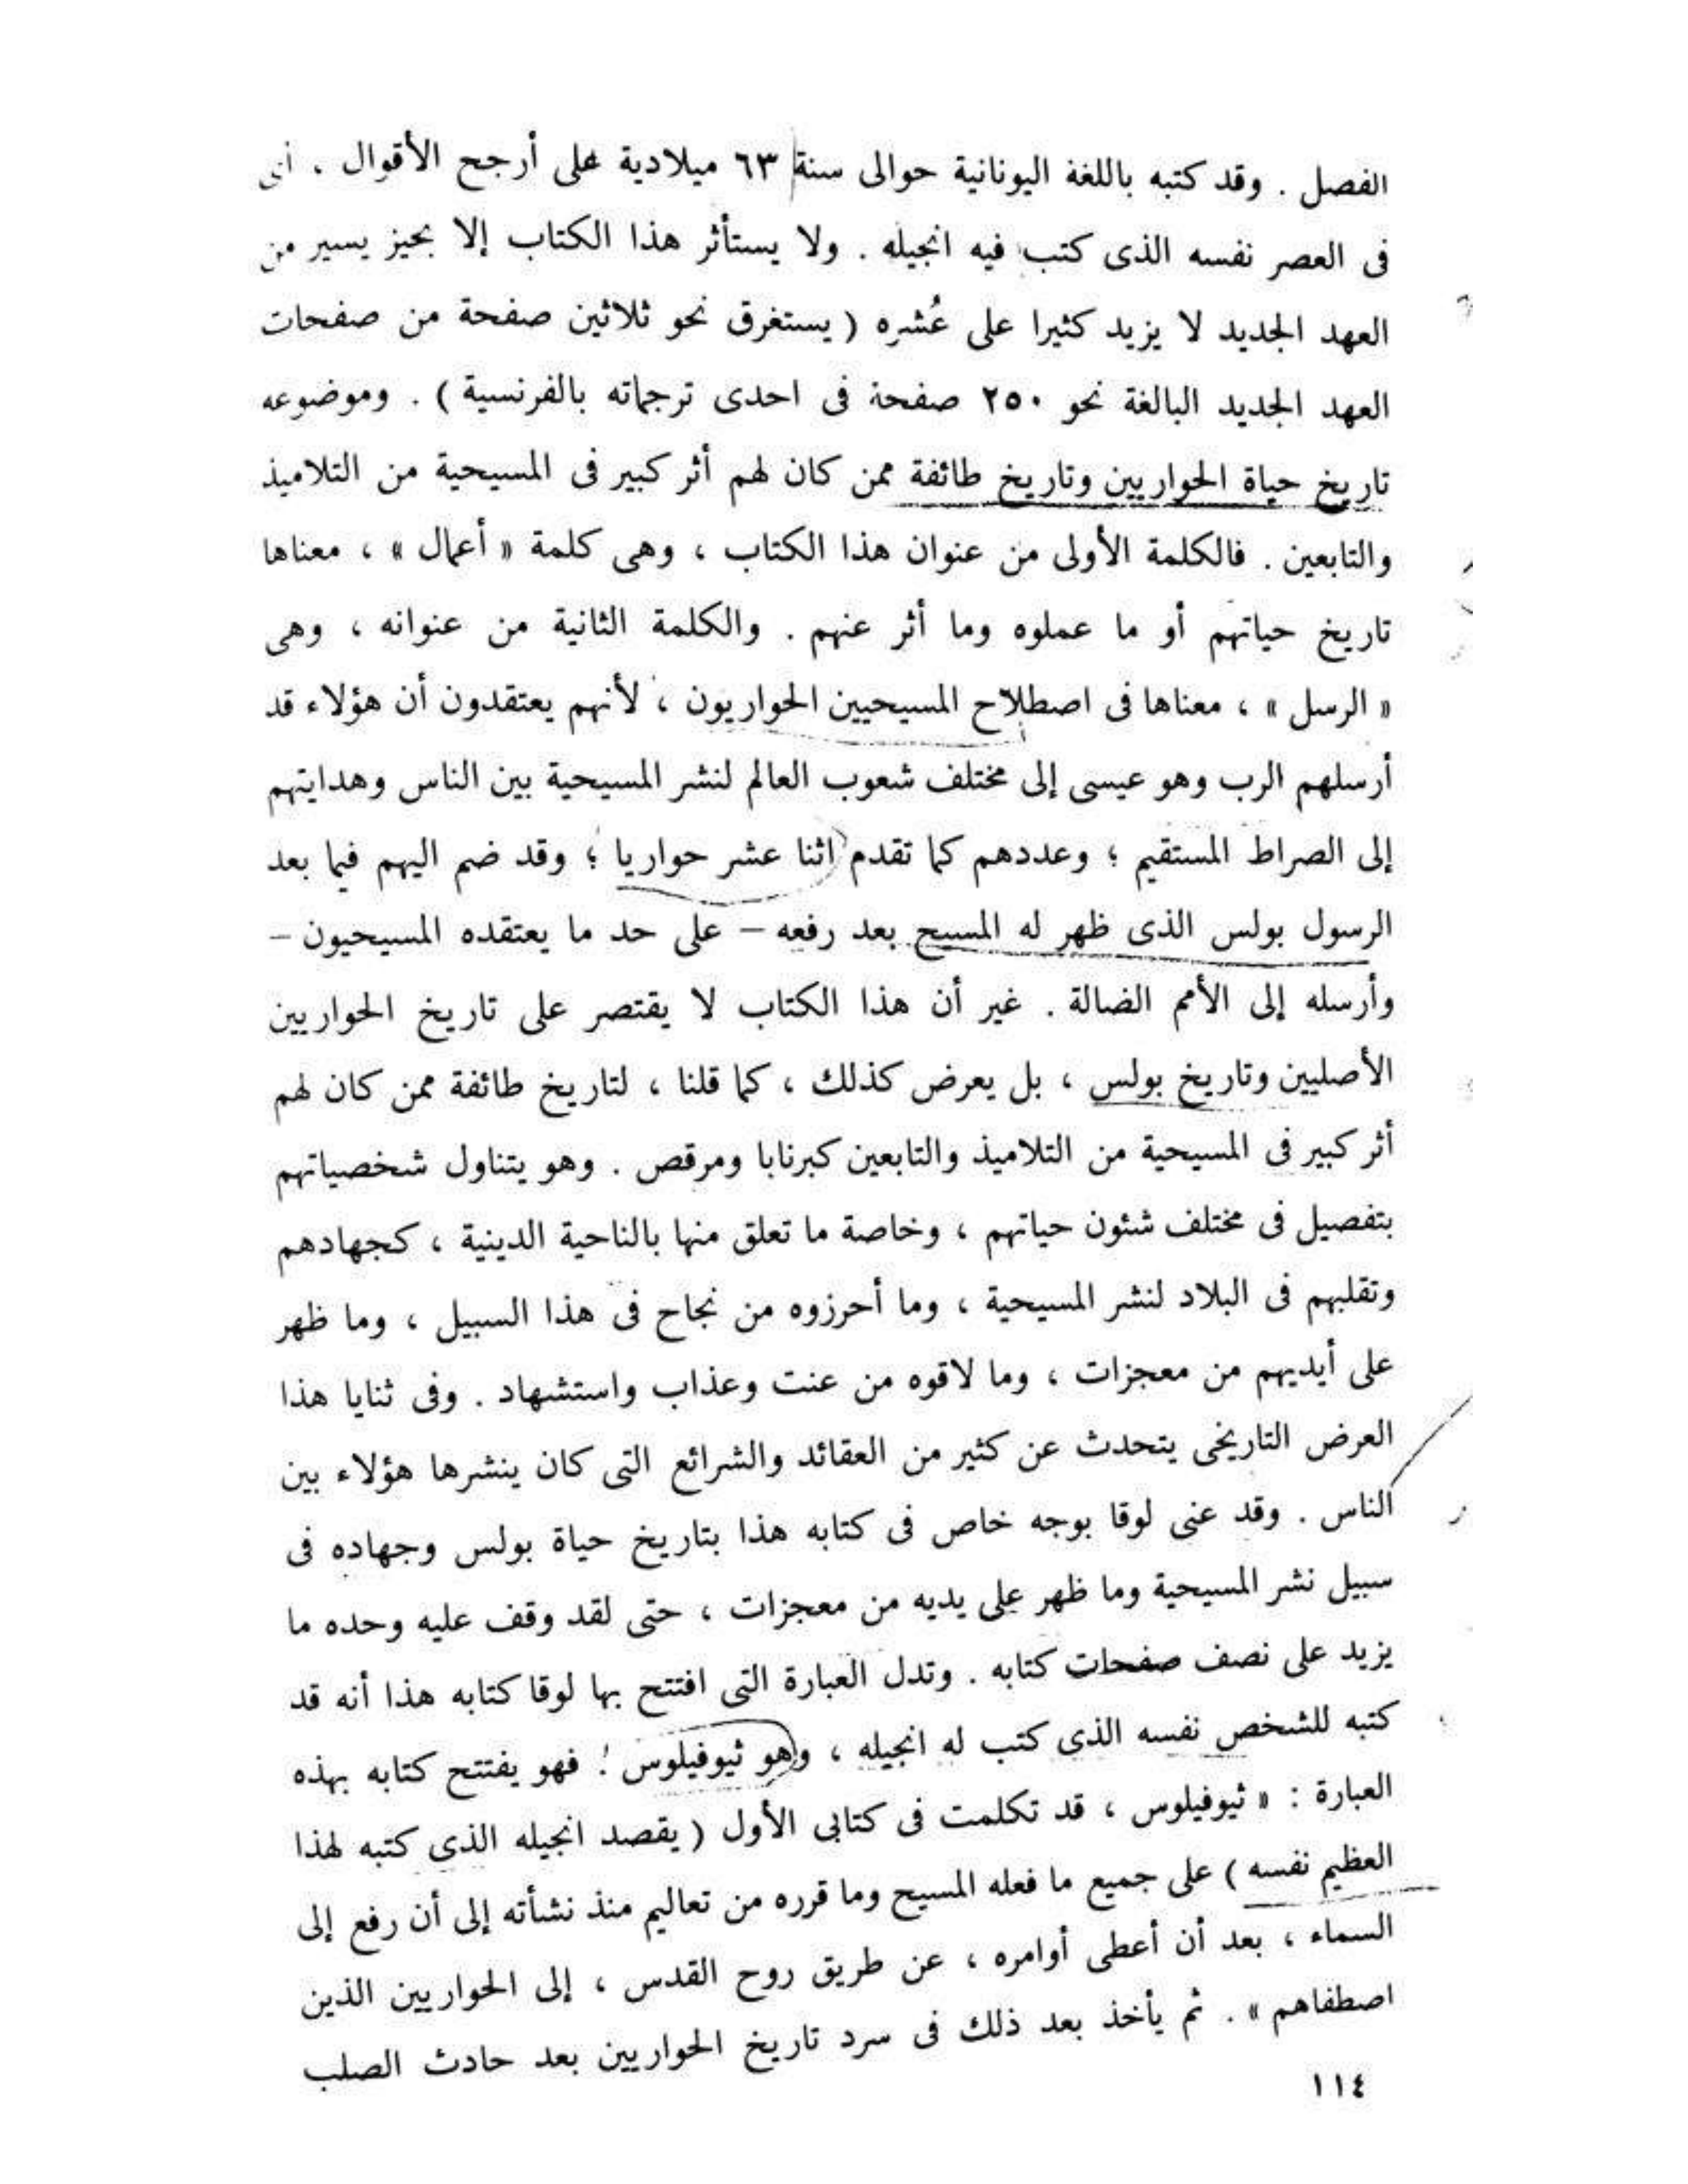 الفصل . وقد كتبه باللغة اليونانية حوالى سنة ٦٣ ميلادية على أرجح الأقوال ، أى
فى العصر نفسه الذى كتب فيه انجيله . ولا يستأثر هذا الكتاب إلا بحيز يسير من
العهد الجديد لا يزيد كثيرا على عُشره ( يستغرق نحو ثلاثين صفحة من صفحات
العهد الجديد البالغة نحو ٢٥٠ صفحة فى احدى ترجماته بالفرنسية ) . وموضوعه
تاريخ حياة الحواريين وتاريخ طائفة ممن كان لهم أثر كبير فى المسيحية من التلاميذ
والتابعين . فالكلمة الأولى من عنوان هذا الكتاب ، وهى كلمة « أعمال » ، معناها
تاريخ حياتهم أو ما عملوه وما أثر عنهم . والكلمة الثانية من عنوانه ، وهى
« الرسل » ، معناها فى اصطلاح المسيحيين الحواريون ، لأنهم يعتقدون أن هؤلاء قد
أرسلهم الرب وهو عيسى إلى مختلف شعوب العالم لنشر المسيحية بين الناس وهدايتهم
إلى الصراط المستقيم ؛ وعددهم كما تقدم اثنا عشر حواريا ؛ وقد ضم اليهم فيما بعد
الرسول بولس الذى ظهر له المسيح بعد رفعه – على حد ما يعتقده المسيحيون –
وأرسله إلى الأمم الضالة . غير أن هذا الكتاب لا يقتصر على تاريخ الحواريين
الأصليين وتاريخ بولس ، بل يعرض كذلك ، كما قلنا ، لتاريخ طائفة ممن كان لهم
أثر كبير فى المسيحية من التلاميذ والتابعين كبرنابا ومرقص . وهو يتناول شخصياتهم
بتفصيل فى مختلف شئون حياتهم ، وخاصة ما تعلق منها بالناحية الدينية ، كجهادهم
وتقلبهم فى البلاد لنشر المسيحية ، وما أحرزوه من نجاح فى هذا السبيل ، وما ظهر
على أيديهم من معجزات ، وما لاقوه من عنت وعذاب واستشهاد . وفى ثنايا هذا
العرض التاريخى يتحدث عن كثير من العقائد والشرائع التى كان ينشرها هؤلاء بين
الناس . وقد عنى لوقا بوجه خاص فى كتابه هذا بتاريخ حياة بولس وجهاده فى
سبيل نشر المسيحية وما ظهر على يديه من معجزات ، حتى لقد وقف عليه وحده ما
يزيد على نصف صفحات كتابه . وتدل العبارة التى افتتح بها لوقا كتابه هذا أنه قد
كتبه للشخص نفسه الذى كتب له انجيله ، وهو ثيوفيلوس ؛ فهو يفتتح كتابه بهذه
العبارة : « ثيوفيلوس ، قد تكلمت فى كتابى الأول ( يقصد انجيله الذى كتبه لهذا
العظيم نفسه ) على جميع ما فعله المسيح وما قرره من تعاليم منذ نشأته إلى أن رفع إلى
السماء ، بعد أن أعطى أوامره ، عن طريق روح القدس ، إلى الحواريين الذين
اصطفاهم » . ثم يأخذ بعد ذلك فى سرد تاريخ الحواريين بعد حادث الصلب
١١٤